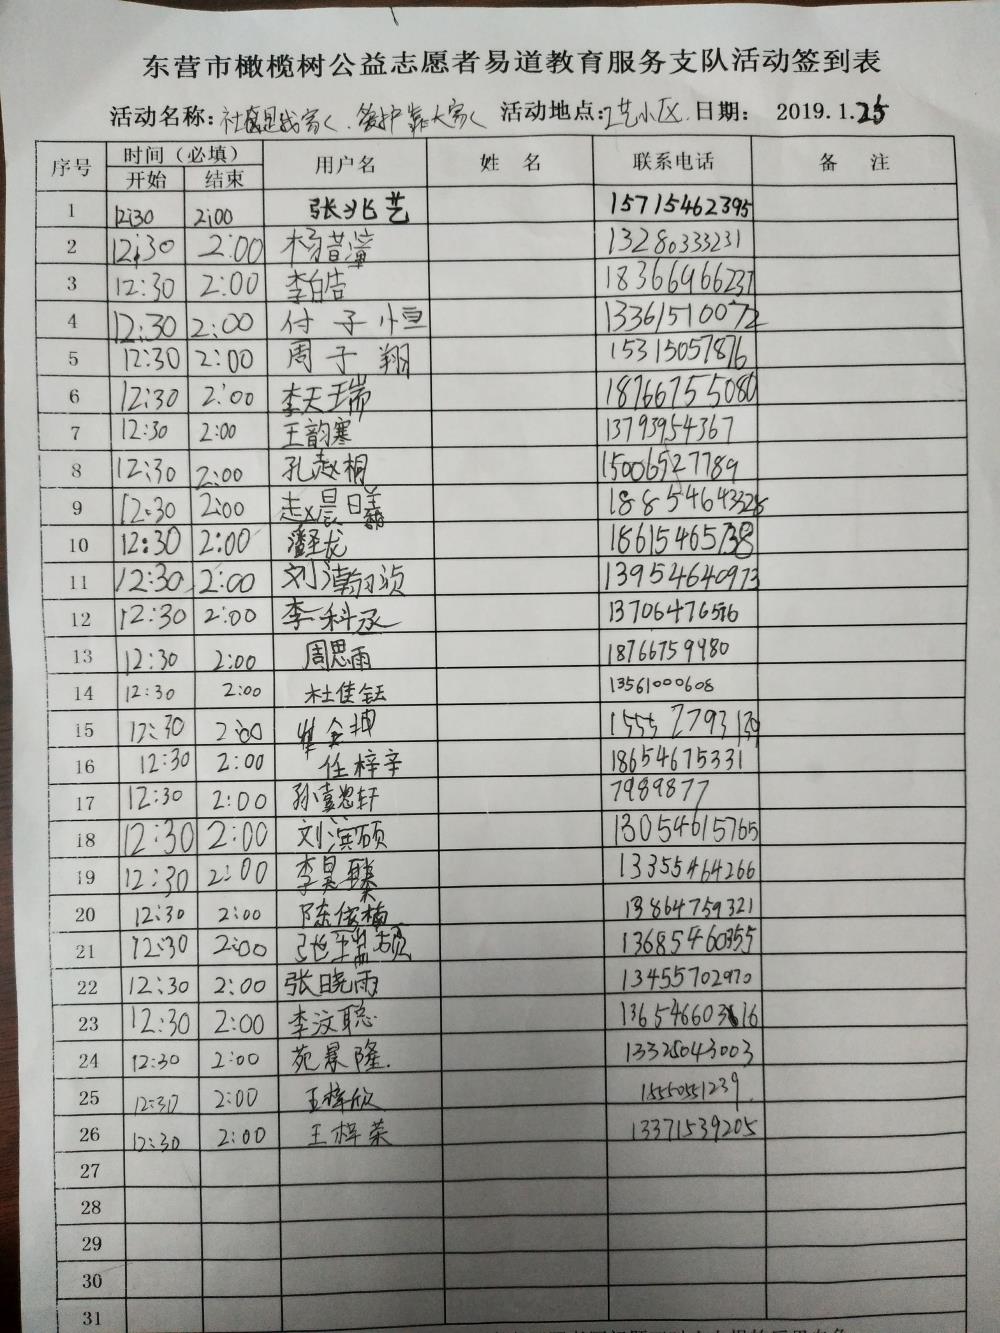 东营市橄榄树公益志愿者易道教育服务支队活动签到表
活动名称: 社区是我家, 爱护靠大家 活动地点: 艺小区 日期: 2019.1.25
序号 时间(必填) 用户名 姓名 联系电话 备注
开始 结束
1 12:30 2:00 张兆艺 15715462395
2 12:30 2:00 杨 13280333231
3 12:30 2:00 李皓 18366966237
4 12:30 2:00 付子恒 13361510072
5 12:30 2:00 周子翔 15315057876
6 12:30 2:00 李天瑞 18766755080
7 12:30 2:00 王韵寒 13793954367
8 12:30 2:00 孔赵桐 15006527789
9 12:30 2:00 赵晨曦 18854643328
10 12:30 2:00 龙 18615465738
11 12:30 2:00 刘 13954640973
12 12:30 2:00 李科丞 13706476516
13 12:30 2:00 周思雨 18766759980
14 12:30 2:00 杜佳钰 13561000608
15 12:30 2:00 崔金坤 15552793139
16 12:30 2:00 任梓辛 18654675331
17 12:30 2:00 孙轩 7989877
18 12:30 2:00 刘滨硕 13054615765
19 12:30 2:00 李昊臻 13355464266
20 12:30 2:00 陈楠 13864759321
21 12:30 2:00 张硕 13685460355
22 12:30 2:00 张晓雨 13455702970
23 12:30 2:00 李汶聪 13654660316
24 12:30 2:00 苑景隆 13325043003
25 12:30 2:00 王梓欣 15550551239
26 12:30 2:00 王梓荣 13371539205
27
28
29
30
31